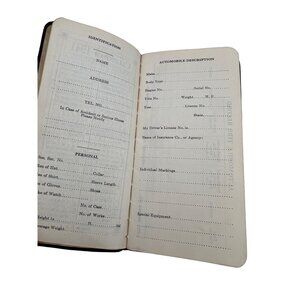 IDENTIFICATION
NAME
ADDRESS
TEL. NO.
In Case of Accident or Serious Illness
Please Notify
PERSONAL
Soc. Sec. No.
of Hat
of Shirt Collar
Sleeve Length
of Gloves Shoes
of Watch
No. of Case
No. of Works
Height is ft. in.
Average Weight
AUTOMOBILE DESCRIPTION
Make
Body Type
Engine No. Serial No.
Title No. Weight H. P.
Year License No.
State
My Driver's License No. is
Name of Insurance Co., or Agency
Individual Markings
Special Equipment